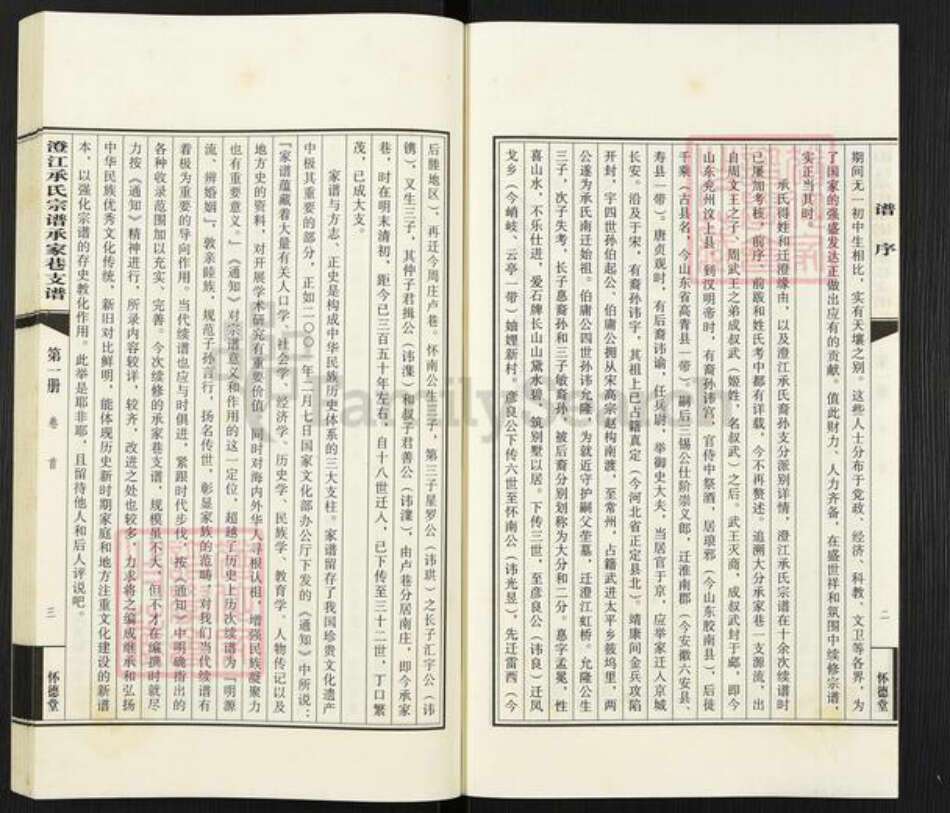 谱序
二
怀德堂
期间无一初中生相比，实有天壤之别。这些人士分布于党政、经济、科教、文卫等各界，为
了国家的强盛发达正做出应有的贡献。值此财力、人力齐备，在盛世祥和氛围中续修宗谱，
实正当其时。
承氏得姓和迁澄缘由，以及澄江承氏裔孙支分派别详情，澄江承氏宗谱在十余次续谱时
已屡加考核，前序、前跋和姓氏考中都有详载，今不再赘述。追溯大分承家巷一支源流，出
自周文王之子、周武王之弟成叔武（姬姓，名叔武）之后。武王灭商，成叔武封于郕，即今
山东兖州汶上县，到汉明帝时，有裔孙讳宫，官侍中祭酒，居琅邪（今山东胶南县），后徙
千乘（古县名，今山东省高青县一带）。嗣后三锡公仕阶崇义郎，迁淮南郡（今安徽六安县、
寿县一带）。唐贞观时，有后裔讳谕，任兵尉，举御史大夫，当居官于京，应举家迁人京城
长安。沿及于宋，有裔孙讳宇，其祖上已占籍真定（今河北省正定县北）。靖康间金兵攻陷
开封，宇四世孙伯起公，伯庸公拥从宋高宗赵构南渡，至常州，占籍武进太平乡筱坞里，两
公遂为承氏南迁始祖。伯庸公四世孙讳允隆，为就近守护嗣父茔墓，迁澄江虹桥。允隆公生
三子，次子失考，长子惪裔孙和三子敏裔孙，被后裔分别划称为大分和二分。惪字孟冕，性
喜山水，不乐仕进，爱石牌长山山黛水碧，筑别墅以居。下传三世，至彦良公（讳良）迁凤
戈乡（今峭岐、云亭一带）妯娌新村。彦良公下传六世至怀南公（讳光昱），先迁雷西（今
后塍地区），再迁今周庄卢巷。怀南公生三子，第三子星罗公（讳琪）之长子汇宇公（讳
镌），又生三子，其仲子君揖公（讳潗）和叔子君善公（讳潗），由卢巷分居南庄，即今承家
巷，时在明末清初，距今已三百五十年左右，自十八世迁人，已下传至三十二世，丁口繁
茂，已成大支。
家谱与方志、正史是构成中华民族历史体系的三大支柱。家谱留存了我国珍贵文化遗产
中极其重要的部分，正如二〇〇一年二月七日国家文化部办公厅下发的《通知》中所说：
“家谱蕴藏着大量有关人口学、社会学、经济学、历史学、民族学、教育学、人物传记以及
地方史的资料，对开展学术研究有重要价值，同时对海内外华人寻根认祖，增强民族凝聚力
也有重要意义。”《通知》对宗谱意义和作用的这一定位，超越了历史上历次续谱为“明源
流、辨婚姻”，敦亲睦族，规范子孙言行，扬名传世，彰显家族的范畴，对我们当代续谱有
着极为重要的导向作用。当代续谱也应与时俱进，紧跟时代步伐，按《通知》中明确指出的
各种收录范围加以充实、完善。今次续修的承家巷支谱，规模虽不大，但不才在编撰时就尽
力按《通知》精神进行，所录内容较详，较齐，改进之处也较多，力求将之编成继承和弘扬
中华民族优秀文化传统，新旧对比鲜明，能体现历史新时期家庭和地方注重文化建设的新谱
本，以强化宗谱的存史教化作用。此举是耶非耶，且留待他人和后人评说吧。
澄江承氏宗谱承家巷支谱
第一册
卷首
三
怀德堂
FamilySearch